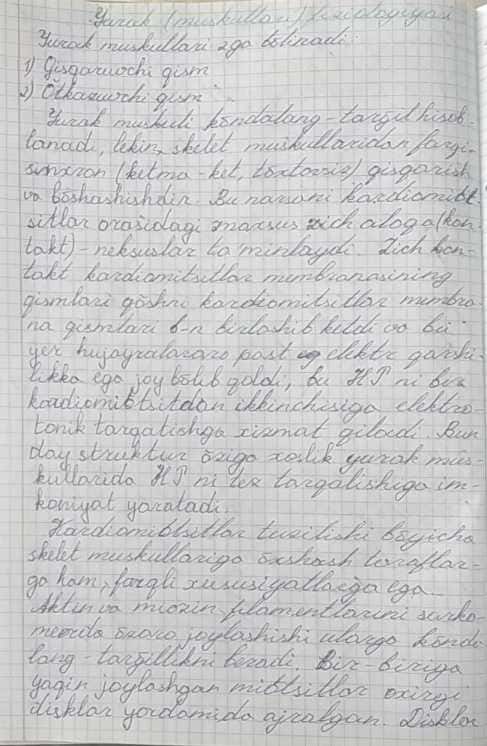 Yurak (muskullari) fiziologiyasi
Yurak muskullari 2ga bōlinadi:
1) Qisqaruvchi qism
2) Ōtkazuvchi qism
Yurak muskuli kōndalang-targil hisob-
lanadi, lekin, skelet muskullaridan farqi-
sinxron (ketma-ket, tōxtovsiz) qisqarish
va bōshashishdir. Bu narsani kardiomiot-
sitlar orasidagi maxsus zich aloqa (kon-
takt) - neksuslar ta'minlaydi. Zich kon-
takt kardiomitsitlar membranasining
qismlari qōshni kardiomitsitlar membra-
na qismlari b-n birlashib ketdi va bu
yer hujayralararo past elektr qarshi-
likka ega joy bōlib qoldi, bu HP ni bir
kardiomiotsitdan ikkinchisiga elektro-
tonik tarqatishga xizmat qiladi. Bun
day struktur ōziga xoslik yurak mus-
kullarida HP ni tez tarqalishiga im-
koniyat yaratadi.
Kardiomiotsitlar tuzilishi bōyicha
skelet muskullariga ōxshash taraflar-
ga ham, farqli xususiyatlarga ega.
Aktin va miozin filamentlarini sarko-
merda ōzaro joylashishi ularga kōnda
lang-targillikni beradi. Bir-biriga
yaqin joylashgan miotsitlar oxirgi
disklar yordamida ajralgan. Disklar